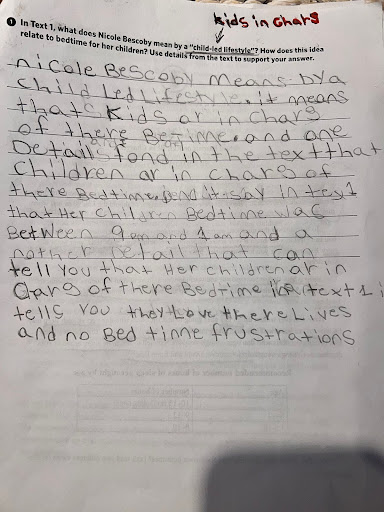 kids in Chars
1 In Text 1, what does Nicole Bescoby mean by a "child-led lifestyle"? How does this idea
relate to bedtime for her children? Use details from the text to support your answer.
nicole Bescoby means bya
child Led Lifestyle. it means
that Kids ar in Chars
of there Betime. and one
Detail fond in the text that
Children ar in chars of
there Bedtime. is say in tex1
that Her children Bedtime was
Between 9pm and 1am and a
nother Detail that can
tell You that Her children ar in
Cars of there Bedtime in text 1 i
tells You they Love there Lives
and no Bed time frustrations